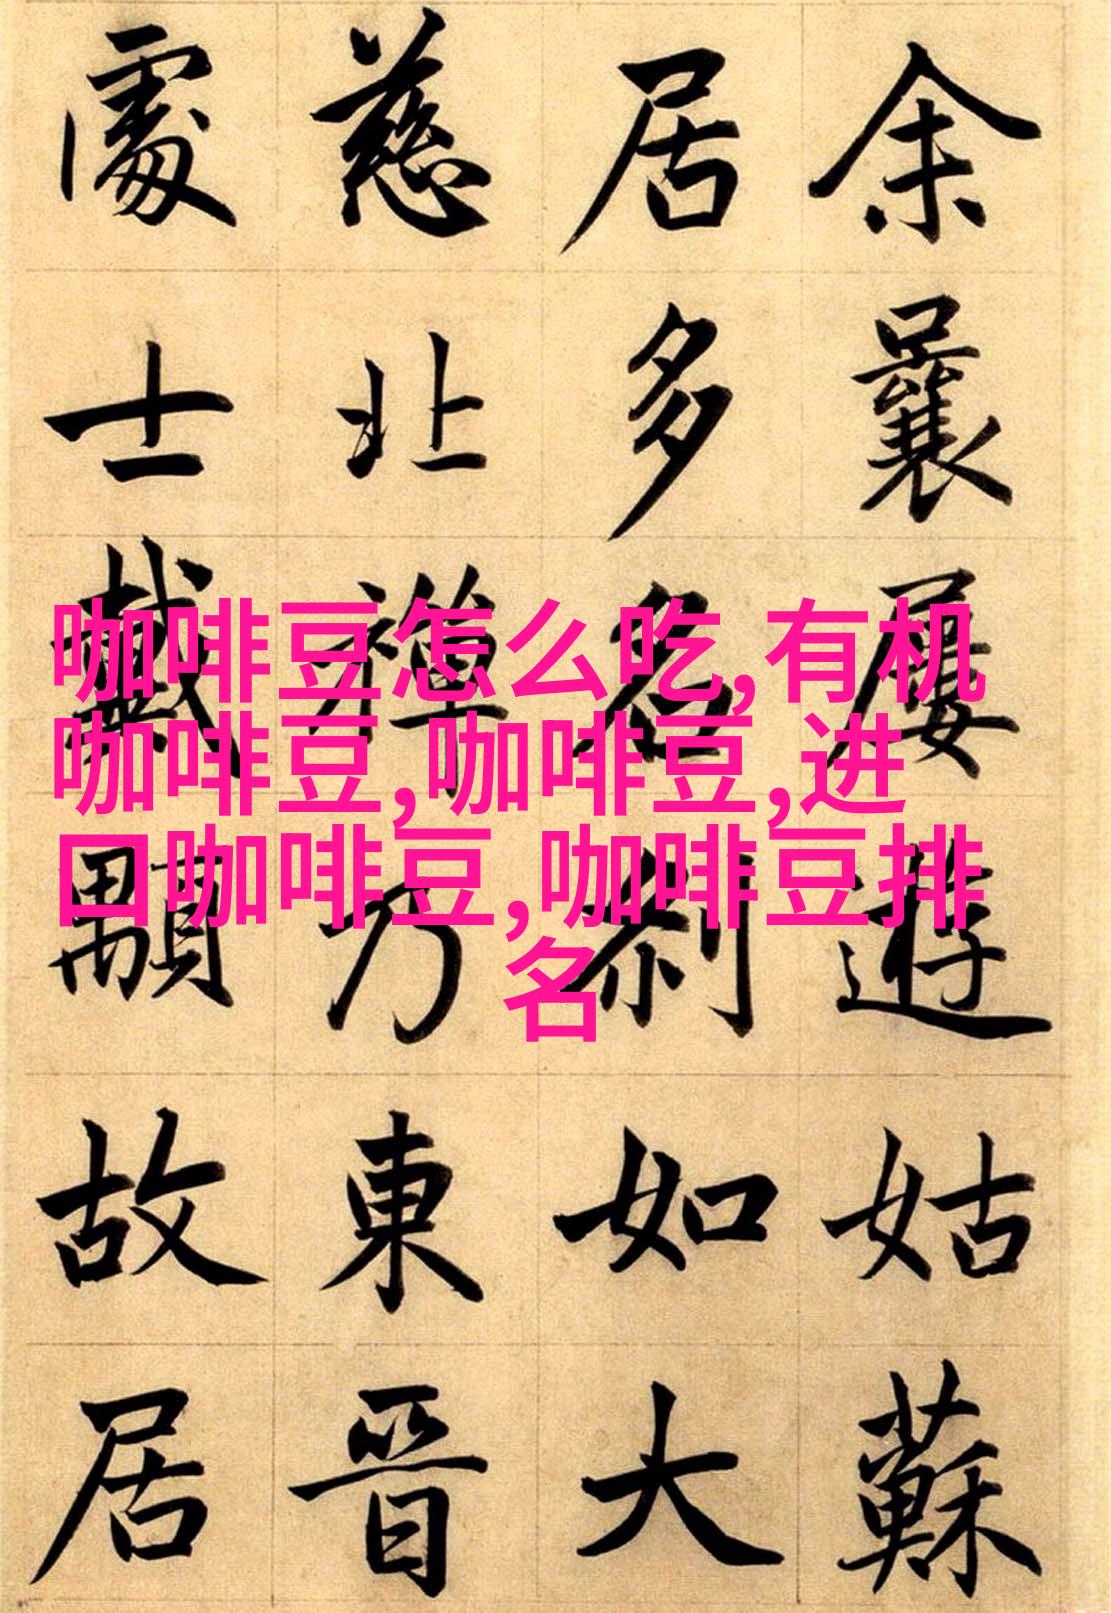 余曩屢遊姑蘇
居多名刹如大
慈北禪乃東晋
處士戴顒故居
咖啡豆怎么吃,有机
咖啡豆,咖啡豆,进
口咖啡豆,咖啡豆排
名